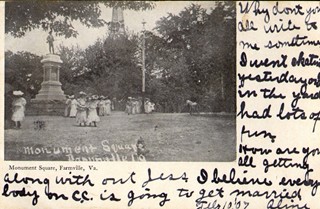 Why don't you
all write to
me sometime
I went skating
yesterday
in the yard
had lots of
fun
How are you
all getting
Monument Square
Farmville Va
Monument Square, Farmville, Va.
along with out Jess I believe every
body on C.C. is going to get married
Aline